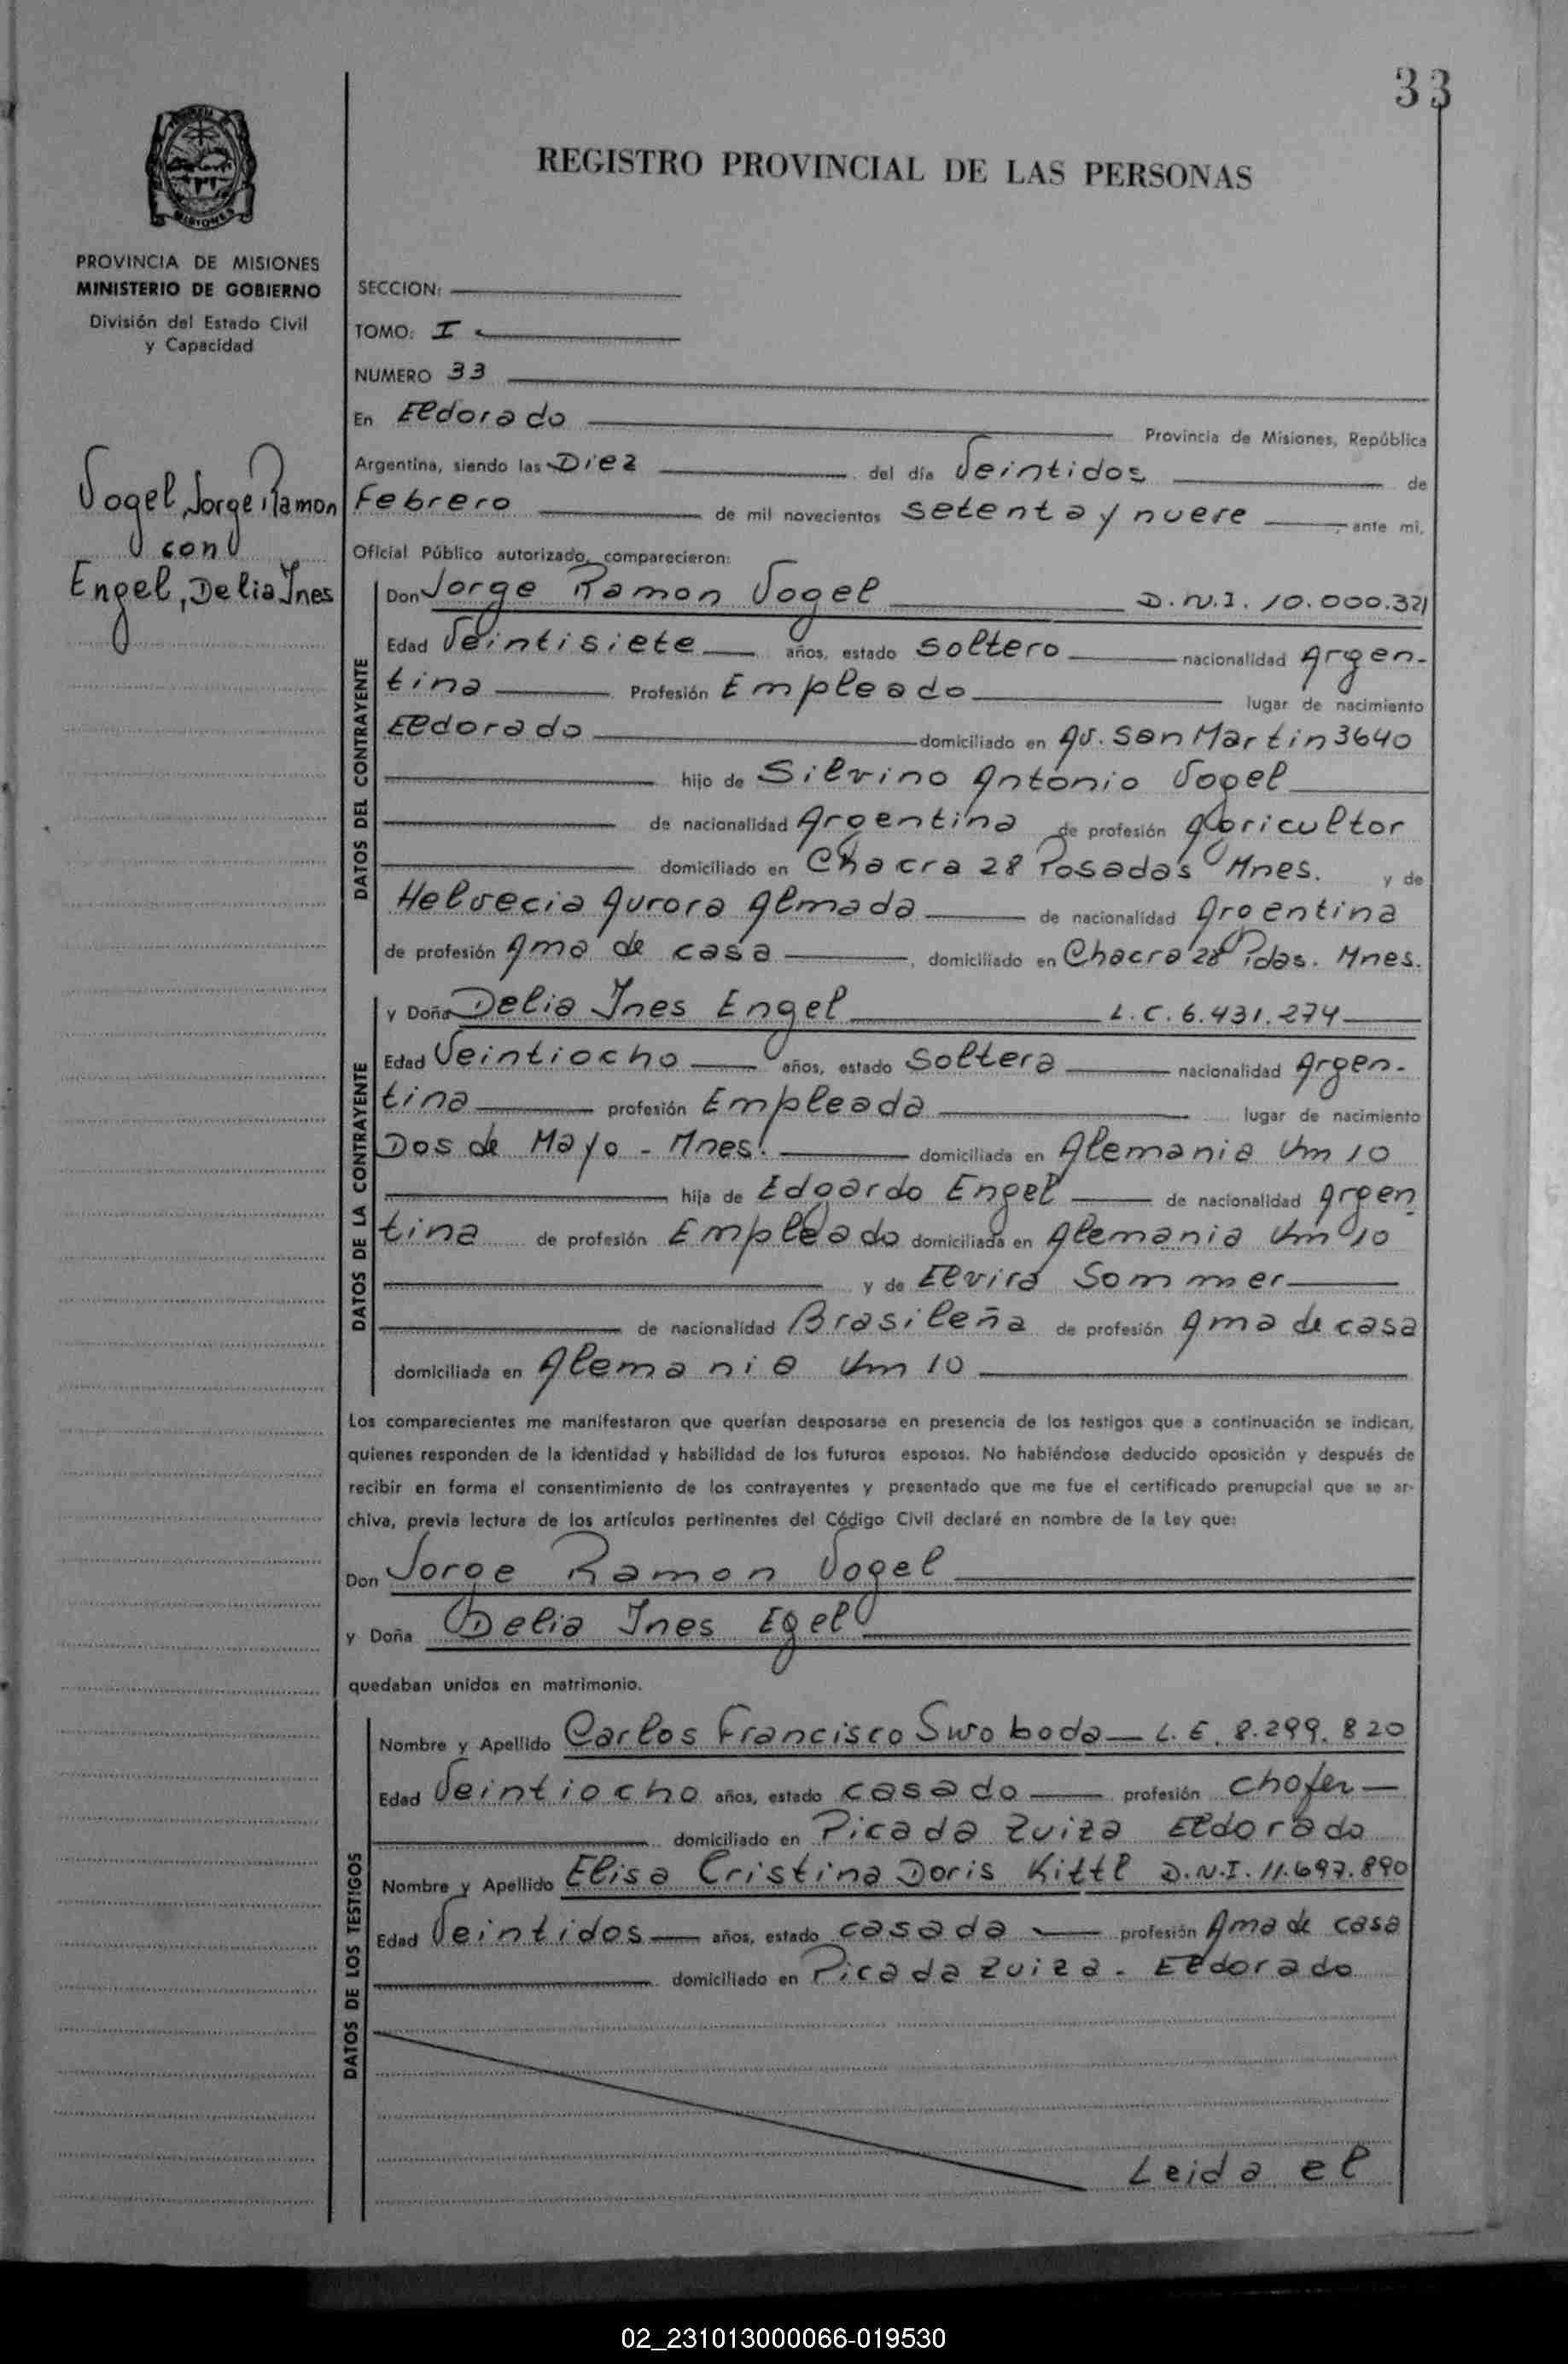 33
REGISTRO PROVINCIAL DE LAS PERSONAS
MISIONES
PROVINCIA DE MISIONES
MINISTERIO DE GOBIERNO
División del Estado Civil
y Capacidad
Vogel, Jorge Ramon
con
Engel, Delia Ines
SECCION:
TOMO: I
NUMERO 33
En Eldorado Provincia de Misiones, República
Argentina, siendo las Diez del día Veintidos de
Febrero de mil novecientos setenta y nueve ante mi,
Oficial Público autorizado, comparecieron:
DATOS DEL CONTRAYENTE
Don Jorge Ramon Vogel D.N.I. 10.000.321
Edad Veintisiete años, estado soltero nacionalidad Argen-
tina Profesión Empleado lugar de nacimiento
Eldorado domiciliado en Av. San Martin 3640
hijo de Silvino Antonio Vogel
de nacionalidad Argentina de profesión Agricultor
domiciliado en Chacra 28 Posadas Mnes. y de
Helvecia Aurora Almada de nacionalidad Argentina
de profesión Ama de casa, domiciliado en Chacra 28 Pdas. Mnes.
DATOS DE LA CONTRAYENTE
y Doña Delia Ines Engel L.C. 6.431.274
Edad Veintiocho años, estado Soltera nacionalidad Argen-
tina profesión Empleada lugar de nacimiento
Dos de Mayo - Mnes. domiciliada en Alemania Km 10
hija de Edgardo Engel de nacionalidad Argen
tina de profesión Empleado domiciliada en Alemania Km 10
y de Elvira Sommer
de nacionalidad Brasileña de profesión Ama de casa
domiciliada en Alemania Km 10
Los comparecientes me manifestaron que querían desposarse en presencia de los testigos que a continuación se indican,
quienes responden de la identidad y habilidad de los futuros esposos. No habiéndose deducido oposición y después de
recibir en forma el consentimiento de los contrayentes y presentado que me fue el certificado prenupcial que se ar-
chiva, previa lectura de los artículos pertinentes del Código Civil declaré en nombre de la Ley que:
Don Jorge Ramon Vogel
y Doña Delia Ines Egel
quedaban unidos en matrimonio.
DATOS DE LOS TESTIGOS
Nombre y Apellido Carlos Francisco Swoboda L.E. 8.299.820
Edad Veintiocho años, estado casado profesión chofer
domiciliado en Picada Zuiza Eldorado
Nombre y Apellido Elisa Cristina Doris Kittl D.N.I. 11.697.890
Edad Veintidos años, estado casada profesión Ama de casa
domiciliado en Picada Zuiza - Eldorado
Leida el
02_231013000066-019530